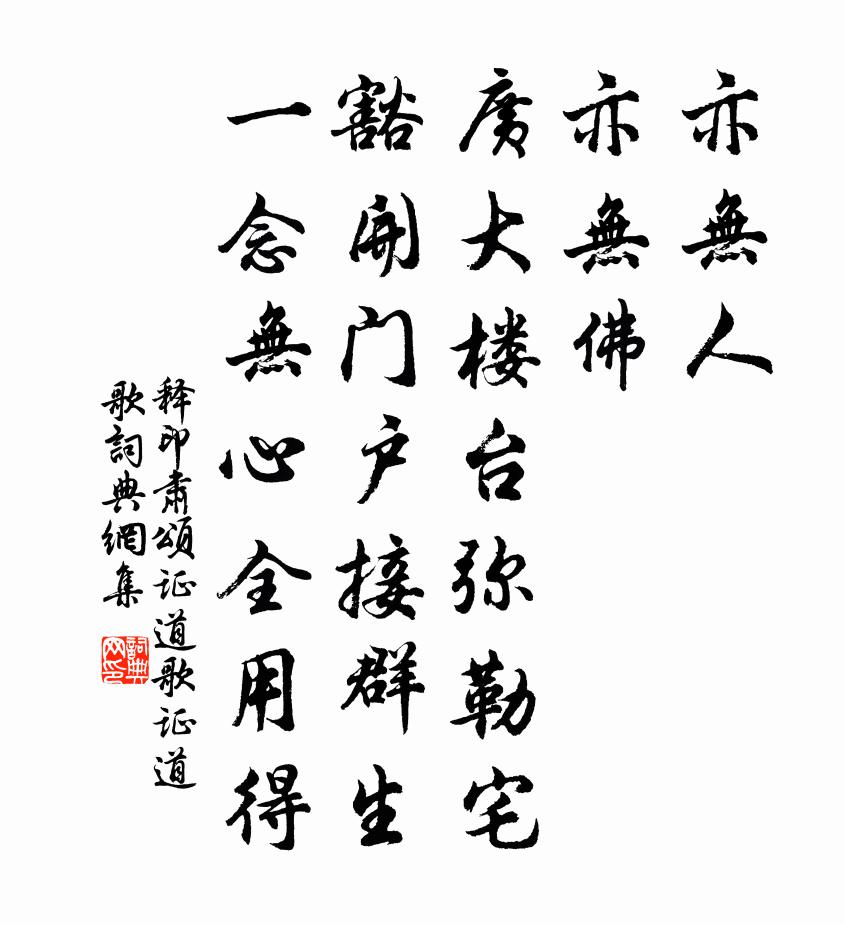 亦無人
亦無佛
廣大楼台弥勒宅
豁開门户接群生
一念無心全用得
释印肃頌证道歌证道
歌詞典網集
詞典
网印